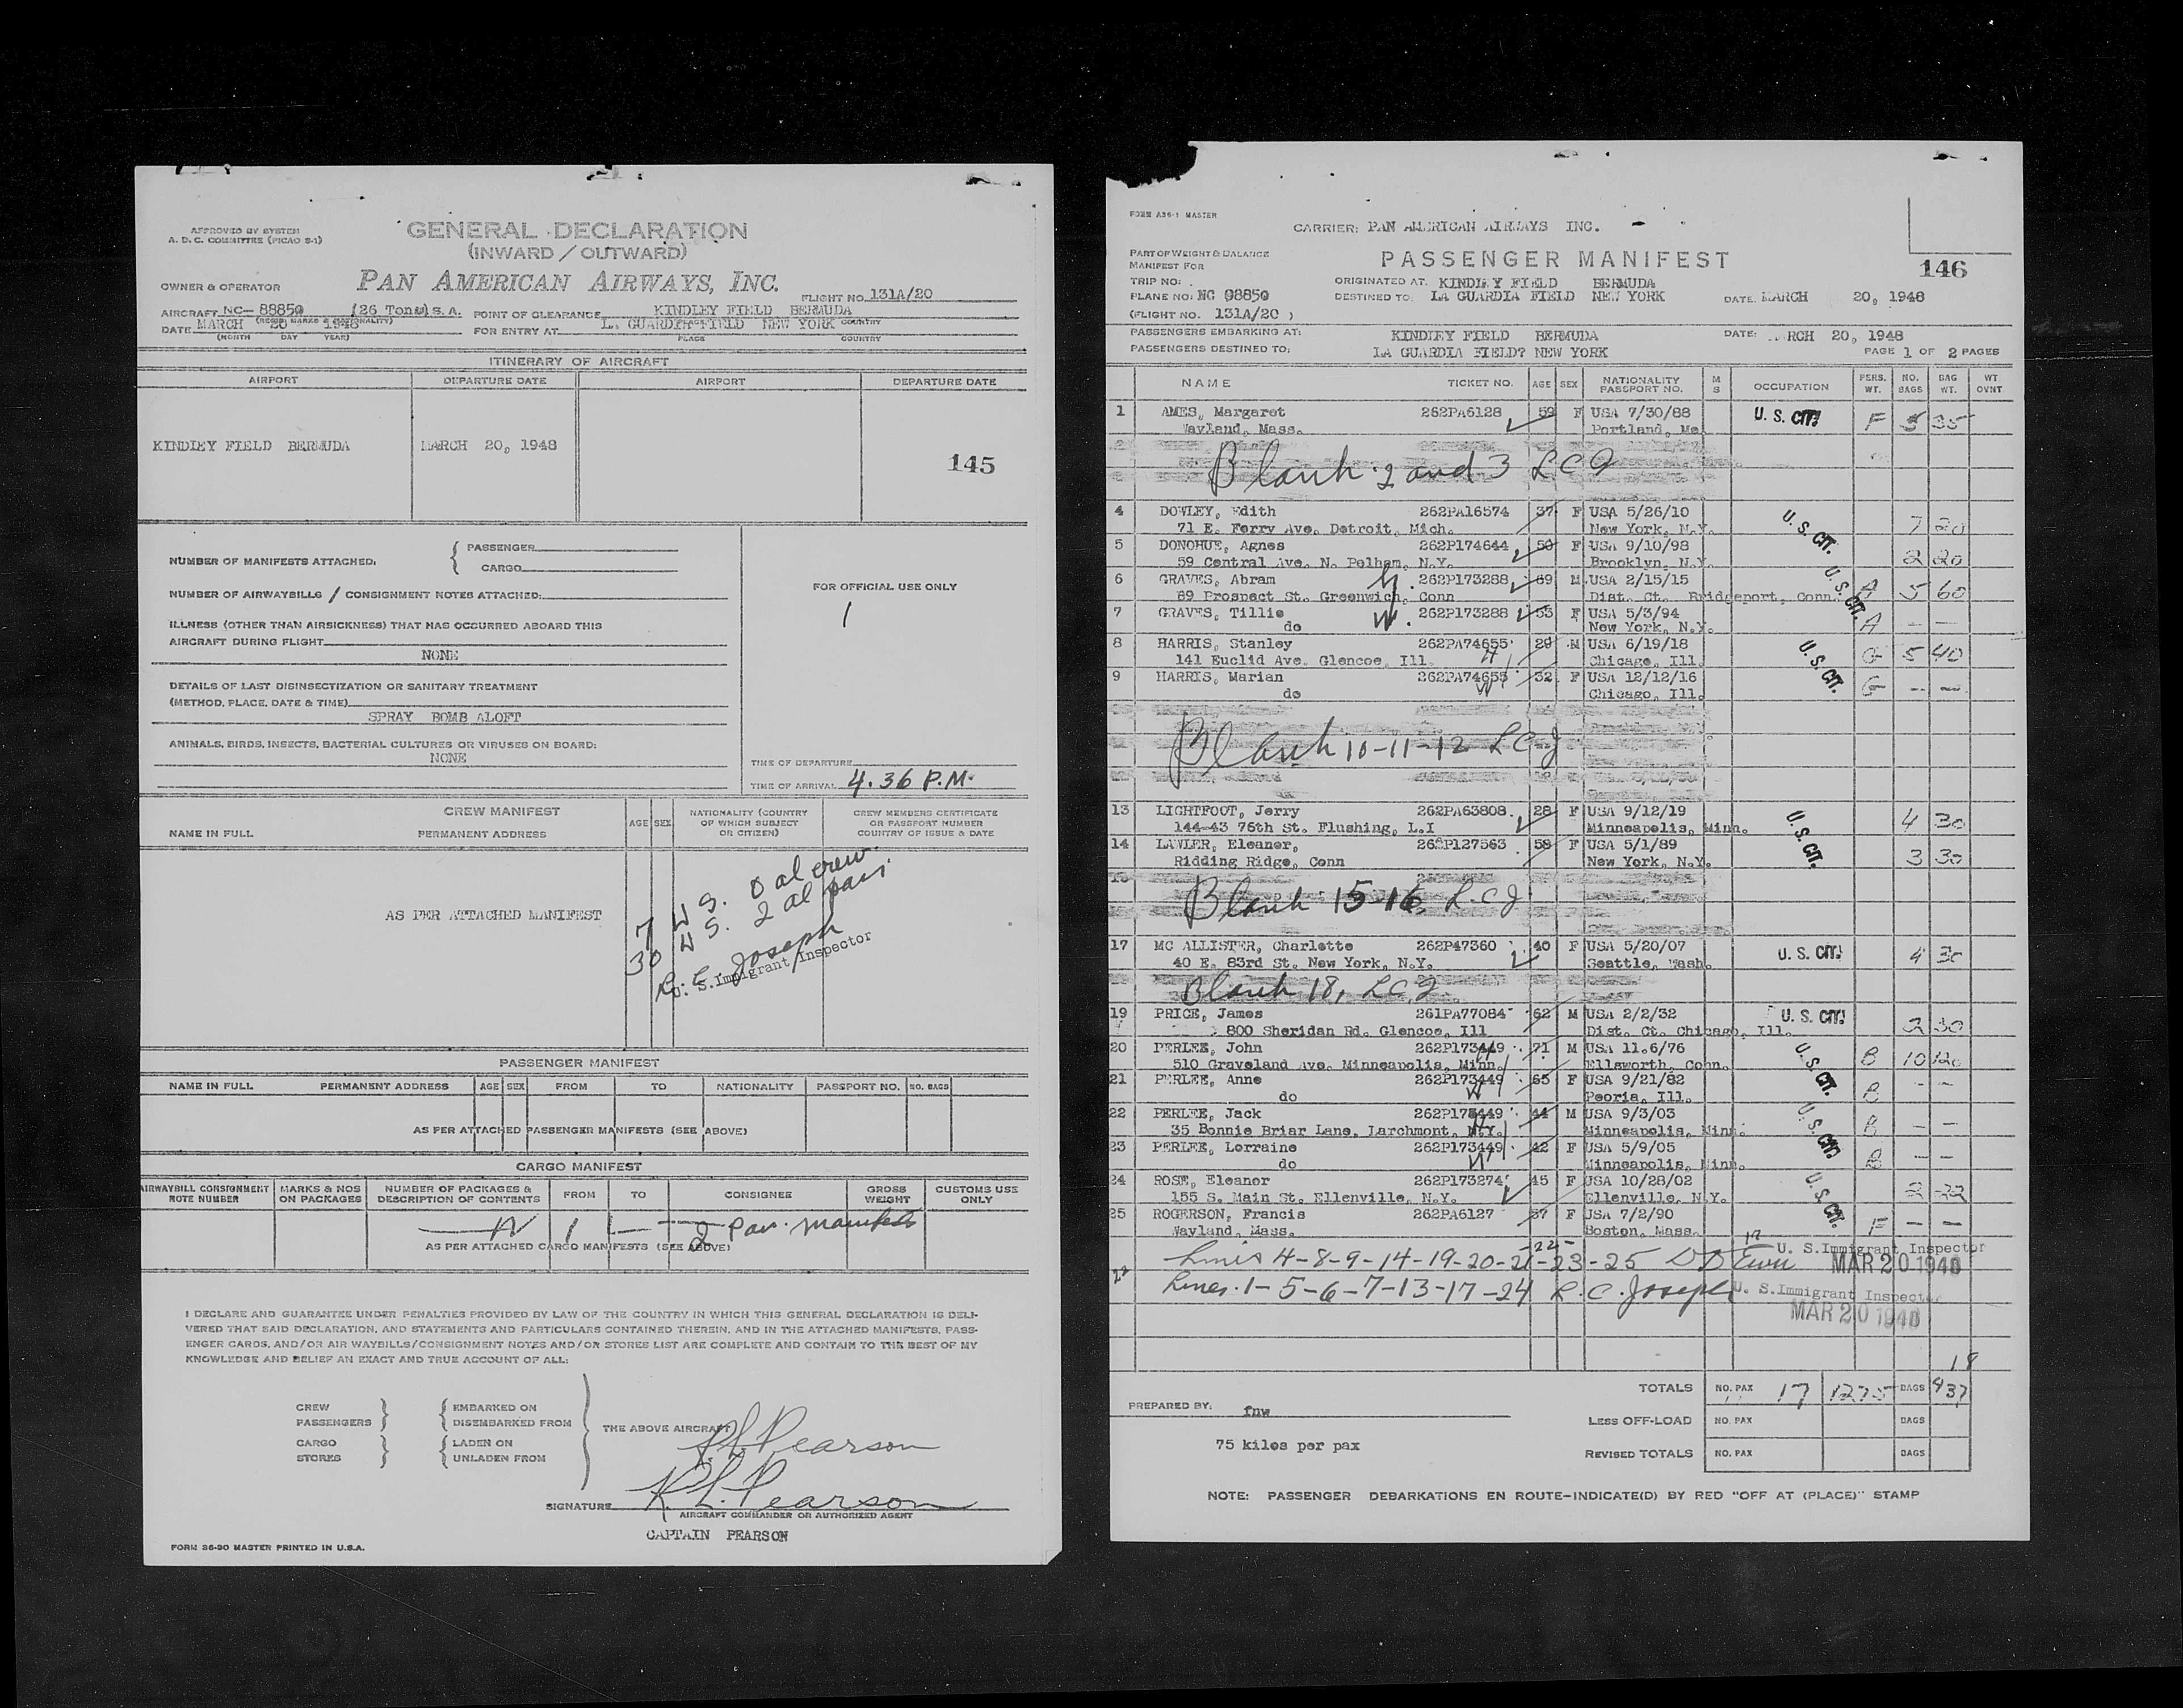 APPROVED BY SYSTEM
A. D. C. COMMITTEE (PICAO S-1)
GENERAL DECLARATION
(INWARD / OUTWARD)
OWNER & OPERATOR
PAN AMERICAN AIRWAYS, INC.
FLIGHT NO. 131A/20
AIRCRAFT NC- 88850 (26 Tons) S. A.
POINT OF CLEARANCE KINDLEY FIELD BERMUDA
DATE MARCH 20 1948
(MONTH DAY YEAR)
FOR ENTRY AT LA GUARDIA FIELD NEW YORK
PLACE COUNTRY
ITINERARY OF AIRCRAFT
AIRPORT DEPARTURE DATE AIRPORT DEPARTURE DATE
KINDLEY FIELD BERMUDA MARCH 20, 1948
145
NUMBER OF MANIFESTS ATTACHED: { PASSENGER
CARGO
NUMBER OF AIRWAYBILLS / CONSIGNMENT NOTES ATTACHED:
FOR OFFICIAL USE ONLY
1
ILLNESS (OTHER THAN AIRSICKNESS) THAT HAS OCCURRED ABOARD THIS
AIRCRAFT DURING FLIGHT
NONE
DETAILS OF LAST DISINSECTIZATION OR SANITARY TREATMENT
(METHOD, PLACE, DATE & TIME)
SPRAY BOMB ALOFT
ANIMALS, BIRDS, INSECTS, BACTERIAL CULTURES OR VIRUSES ON BOARD:
NONE
TIME OF DEPARTURE
TIME OF ARRIVAL 4.36 P.M.
CREW MANIFEST
NAME IN FULL PERMANENT ADDRESS AGE SEX NATIONALITY (COUNTRY OF WHICH SUBJECT OR CITIZEN) CREW MEMBERS CERTIFICATE OR PASSPORT NUMBER COUNTRY OF ISSUE & DATE
AS PER ATTACHED MANIFEST
7 U S. 0 al crew
30 U S. 2 al pass
L. C. Joseph
U. S. Immigrant Inspector
PASSENGER MANIFEST
NAME IN FULL PERMANENT ADDRESS AGE SEX FROM TO NATIONALITY PASSPORT NO. NO. BAGS
AS PER ATTACHED PASSENGER MANIFESTS (SEE ABOVE)
CARGO MANIFEST
AIRWAYBILL CONSIGNMENT NOTE NUMBER MARKS & NOS ON PACKAGES NUMBER OF PACKAGES & DESCRIPTION OF CONTENTS FROM TO CONSIGNEE GROSS WEIGHT CUSTOMS USE ONLY
2 Pax. manifests
AS PER ATTACHED CARGO MANIFESTS (SEE ABOVE)
I DECLARE AND GUARANTEE UNDER PENALTIES PROVIDED BY LAW OF THE COUNTRY IN WHICH THIS GENERAL DECLARATION IS DELI-
VERED THAT SAID DECLARATION, AND STATEMENTS AND PARTICULARS CONTAINED THEREIN, AND IN THE ATTACHED MANIFESTS, PASS-
ENGER CARDS, AND/OR AIR WAYBILLS/CONSIGNMENT NOTES AND/OR STORES LIST ARE COMPLETE AND CONTAIN TO THE BEST OF MY
KNOWLEDGE AND BELIEF AN EXACT AND TRUE ACCOUNT OF ALL:
CREW
PASSENGERS
CARGO
STORES
EMBARKED ON
DISEMBARKED FROM
LADEN ON
UNLADEN FROM
THE ABOVE AIRCRAFT
R L Pearson
SIGNATURE R. L. Pearson
AIRCRAFT COMMANDER OR AUTHORIZED AGENT
CAPTAIN PEARSON
FORM 36-90 MASTER PRINTED IN U.S.A.
FORM A36-1 MASTER
CARRIER: PAN AMERICAN AIRWAYS INC.
PART OF WEIGHT & BALANCE
MANIFEST FOR
PASSENGER MANIFEST
146
TRIP NO:
ORIGINATED AT. KINDLEY FIELD BERMUDA
PLANE NO: NC 88850
DESTINED TO. LA GUARDIA FIELD NEW YORK
DATE. MARCH 20, 1948
(FLIGHT NO. 131A/20 )
PASSENGERS EMBARKING AT: KINDLEY FIELD BERMUDA DATE: RCH 20, 1948
PASSENGERS DESTINED TO: LA GUARDIA FIELD? NEW YORK PAGE 1 OF 2 PAGES
NAME TICKET NO. AGE SEX NATIONALITY PASSPORT NO. M S OCCUPATION PERS. WT. NO. BAGS BAG WT. WT OVNT
1 AMES, Margaret 262PA6128 59 F USA 7/30/88 U. S. CIT. F 5 35
Wayland, Mass. Portland, Me.
Blank 2 and 3 L C J
4 DOWLEY, Edith 262PA16574 37 F USA 5/26/10 U. S. CIT. 7 20
71 E. Ferry Ave. Detroit, Mich. New York, N.Y.
5 DONOHUE, Agnes 262P174644 50 F USA 9/10/98 2 20
59 Central Ave. N. Pelham, N.Y. Brooklyn, N.Y.
6 GRAVES, Abram H. 262P173288 69 M USA 2/15/15 U. S. CIT. A 5 60
89 Prospect St. Greenwich, Conn Dist. Ct. Bridgeport, Conn.
7 GRAVES, Tillie W. 262P173288 53 F USA 5/3/94 A — —
do New York, N.Y.
8 HARRIS, Stanley 262PA74655 29 M USA 6/19/18 U. S. CIT. G 5 40
141 Euclid Ave. Glencoe, Ill. H Chicago, Ill.
9 HARRIS, Marian 262PA74655 32 F USA 12/12/16 G — —
do W Chicago, Ill.
Blank 10-11-12 L C J
13 LIGHTFOOT, Jerry 262PA63808 28 F USA 9/12/19 U. S. CIT. 4 30
144-43 76th St. Flushing, L.I Minneapolis, Minn.
14 LAWLER, Eleanor, 262P127563 58 F USA 5/1/89 3 30
Ridding Ridge, Conn New York, N.Y.
Blank 15-16 L.C.J
17 MC ALLISTER, Charlotte 262P47360 40 F USA 5/20/07 U. S. CIT. 4 30
40 E. 83rd St. New York, N.Y. Seattle, Wash.
Blank 18, L C J
19 PRICE, James 261PA77084 62 M USA 2/2/32 U. S. CIT. 2 30
800 Sheridan Rd. Glencoe, Ill Dist. Ct. Chicago, Ill.
20 PERLEE, John 262P173449 71 M USA 11.6/76 U. S. CIT. B 10 120
510 Graveland Ave. Minneapolis, Minn. H Ellsworth, Conn.
21 PERLEE, Anne 262P173449 65 F USA 9/21/82 B — —
do W Peoria, Ill.
22 PERLEE, Jack 262P173449 44 M USA 9/3/03 U. S. CIT. B — —
35 Bonnie Briar Lane, Larchmont, N.Y. H Minneapolis, Minn.
23 PERLEE, Lorraine 262P173449 42 F USA 5/9/05 B — —
do W Minneapolis, Minn.
24 ROSE, Eleanor 262P173274 45 F USA 10/28/02 U. S. CIT. 2 22
155 S. Main St. Ellenville, N.Y. Ellenville, N.Y.
25 ROGERSON, Francis 262PA6127 57 F USA 7/2/90 F — —
Wayland, Mass. Boston, Mass.
Lines 4-8-9-14-19-20-21-22-23-25 U. S. Immigrant Inspector MAR 20 1948
Lines 1-5-6-7-13-17-24 L. C. Joseph U. S. Immigrant Inspector
MAR 20 1948
18
TOTALS NO. PAX 17 1275 BAGS 437
PREPARED BY: fnw
LESS OFF-LOAD NO. PAX BAGS
75 kilos per pax
REVISED TOTALS NO. PAX BAGS
NOTE: PASSENGER DEBARKATIONS EN ROUTE-INDICATE(D) BY RED "OFF AT (PLACE)" STAMP